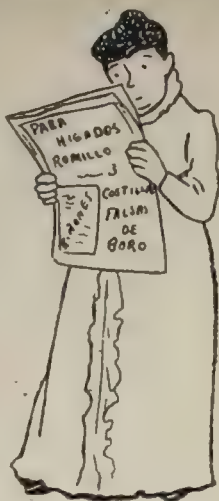 PARA
HIGADOS
ROMILLO
3
COSTILLAS
FALSAS
DE
BORO